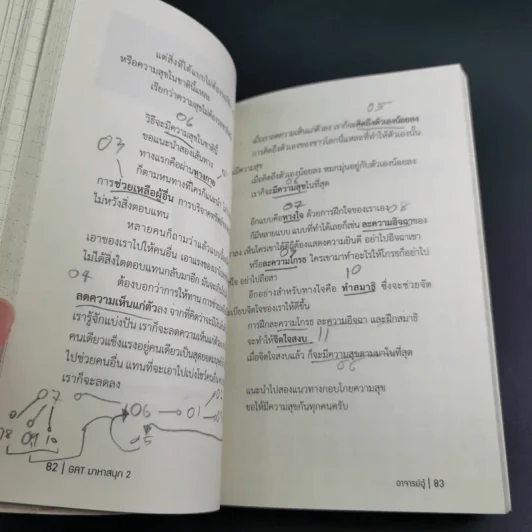 แต่สิ่งที่ได้แบบไม่ต้อง
หรือความสุขในชาตินี้แหละ
เรียกว่าความสุขไม่ต้อง
06
วิธีจะมีความสุขในชาตินี้
ขอแนะนำสองเส้นทาง
03
ทางแรกคือผ่านทางกาย
ก็ตามหนทางที่ใครก็แนะนำ
การช่วยเหลือผู้อื่น การบริจาคทรัพย์
ไม่หวังสิ่งตอบแทน
หลายคนก็ถามว่าแล้วแบบนั้น
เอาของเราไปให้คนอื่น เอาแรงของเรา
ไม่ได้สิ่งใดตอบแทนกลับมาอีก มัน
04
ต้องบอกว่าการให้ทาน การช่วย
ลดความเห็นแก่ตัวลง จากที่คิดว่าฉัน
เรารู้จักแบ่งปัน เราก็จะลดความเห็นแก่ตัว
คนเดียวแข็งแรงอยู่คนเดียวเป็นสุดยอด
ไปช่วยคนอื่น แทนที่จะเอาไปเบ่งโชว์คน
เราก็จะลดลง
07
06
01
08
09
10
05
82 | GAT มาหาสนุก 2
05
เมื่อเราลดความเห็นแก่ตัวลง เราก็จะคิดถึงตัวเองน้อยลง
การคิดถึงตัวเองของชาวโลกนี่แหละที่ทำให้ตัวเองนั้น
มีความสุข
เมื่อคิดถึงตัวเองน้อยลง หมกมุ่นอยู่กับตัวเองน้อยลง
เราก็จะมีความสุขในที่สุด
07
อีกแบบคือทางใจ ด้วยการฝึกใจของเราเอง
08
ก็มีหลายแบบ แบบที่ทำได้เลยก็เช่น ละความอิจฉาของ
ลง เห็นใครเขาได้ดีก็ต้องแสดงความยินดี อย่าไปอิจฉาเขา
09
หรือละความโกรธ ใครเขามาทำอะไรให้โกรธก็อย่าไป
อย่าไปถือสา
10
อีกอย่างสำหรับทางใจคือ ทำสมาธิ ซึ่งจะช่วยจัด
เบียบจิตใจของเราให้ดีขึ้น
การฝึกละความโกรธ ละความอิจฉา และฝึกสมาธิ
จะทำให้จิตใจสงบ
11
เมื่อจิตใจสงบแล้ว ก็จะมีความสุขตามมาในที่สุด
06
แนะนำไปสองแนวทางกอบโกยความสุข
ขอให้มีความสุขกันทุกคนครับ
อาจารย์อู๋ | 83